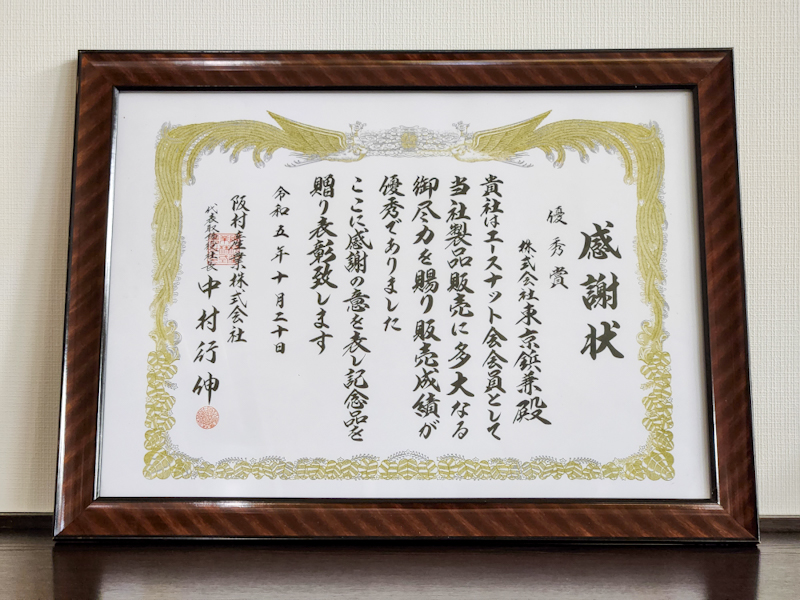 感謝状
優秀賞
株式会社東京鋲兼殿
貴社はエースナット会会員として
当社製品販売に多大なる
御尽力を賜り販売成績が
優秀でありました
ここに感謝の意を表し記念品を
贈り表彰致します
令和五年十月二十日
阪村産業株式会社
代表取締役社長 中村行伸